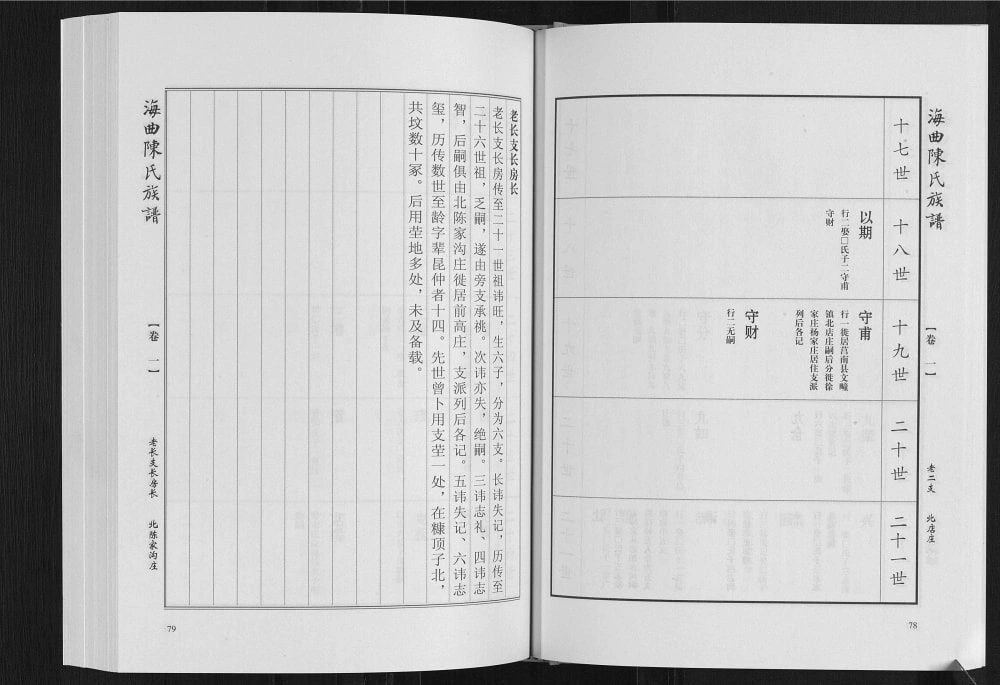 海曲陳氏族譜
【卷一】
老二支 北店庄
78
十七世
十八世
十九世
二十世
二十一世
以期
行二娶□氏子二守甫
守财
守甫
行一徙居莒南县文疃
镇北店庄嗣后分徙徐
家庄杨家庄居住支派
列后各记
守财
行二无嗣
老长支长房长
老长支长房传至二十一世祖讳旺，生六子，分为六支。长讳失记，历传至
二十六世祖，乏嗣，遂由旁支承祧。次讳亦失，绝嗣。三讳志礼、四讳志
智，后嗣俱由北陈家沟庄徙居前高庄，支派列后各记。五讳失记、六讳志
玺，历传数世至龄字辈昆仲者十四。先世曾卜用支茔一处，在糠顶子北，
共坟数十冢。后用茔地多处，未及备载。
海曲陳氏族譜
【卷一】
老长支长房长 北陈家沟庄
79